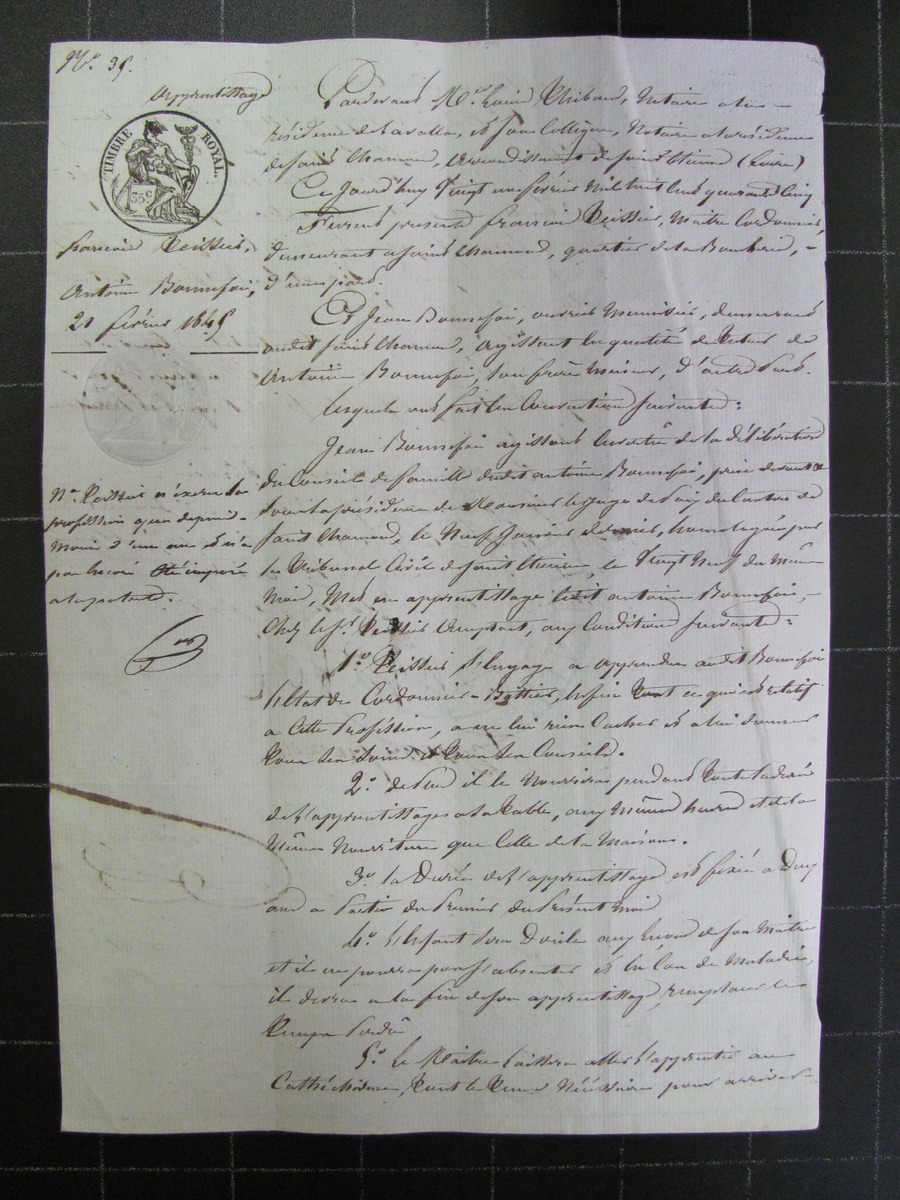 N.° 35.
Apprentissage
TIMBRE ROYAL.
35 c
François Teissier,
Antoine Bonnefoi,
21 février 1845
N.a Teissier n'exerce la
profession que depuis
moins d'un an et n'a
pas encore été imposé
à la patente.
Pardevant Me Louis Thibaud, Notaire à la
résidence de Lavalla, et son Collègue, Notaire à la résidence
de Saint Chamond, arrondissement de Saint Etienne (Loire)
Ce Jourd'huy Vingt un février mil huit cent quarante Cinq
Furent présent François Teissier, Maître Cordonnier,
demeurant à Saint Chamond, quartier de la Boucherie,
d'une part.
Et Jean Bonnefoi, ouvrier Menuisier, demeurant
audit Saint Chamond, agissant en qualité de Tuteur de
Antoine Bonnefoi, son frère Mineur, d'autre Part.
Lesquels ont fait les Conventions suivantes:
Jean Bonnefoi agissant en vertu de la délibération
du Conseil de famille dudit Antoine Bonnefoi, prise devant et
sous la présidence de Monsieur le Juge de Paix du Canton de
Saint Chamond, le Neuf Janvier dernier, homologuée par
le Tribunal Civil de Saint Etienne, le Vingt Neuf du même
Mois, Met en apprentissage ledit Antoine Bonnefoi,
Chez le S.r Teissier acceptant, aux Conditions suivantes:
1.° Teissier S'Engage à apprendre audit Bonnefoi
l'Etat de Cordonnier-Bottier, enfin tout ce qui est relatif
à Cette Profession, à ne lui rien Cacher et à lui donner
Tous ses Soins et Tous ses Conseils.
2.° de Plus il le Nourrira pendant Tout la durée
de l'apprentissages à sa Table, aux Mêmes heures et de la
Même Nourriture que Celle de la Maison.
3.° la Durée de l'apprentissage est fixée à Deux
ans à Partir du Premier du Présent mois
4.° l'Enfant Sera Docile aux leçons de son Maître
et il ne pourra pas s'absenter et En Cas de Maladie,
il devra à la fin de son apprentissage, remplacer le
Temps Perdu
5.° Le Maître laissera aller l'apprenti au
Cathéchisme, tout le temps Nécéssaire pour arriver